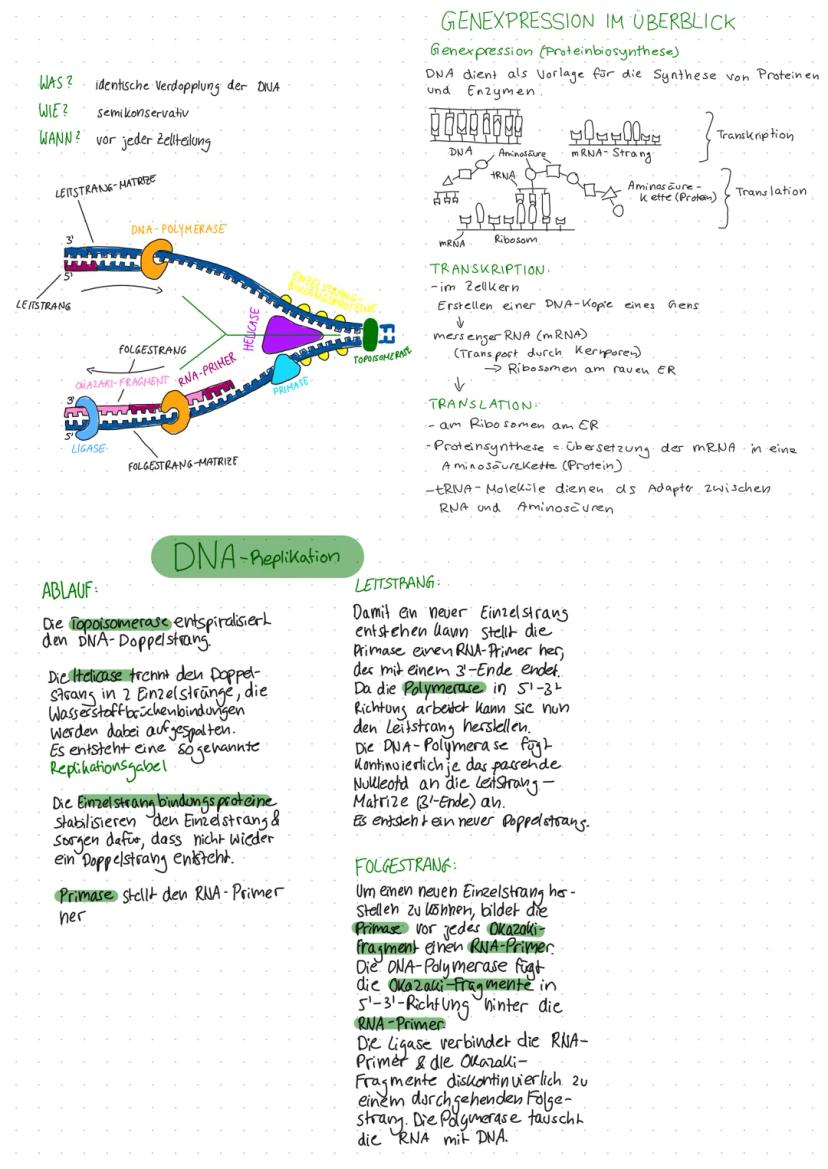 WAS? identische Verdopplung der DNA
WIE? semikonservativ
WANN? vor jeder Zellteilung
LEITSTRANG-MATRIZE
DNA-POLYMERASE
3'
5'
LEITSTRANG
EINZELSTRANG-
BINDUNGSPROTEINE
HELICASE
TOPOISOMERASE
FOLGESTRANG
OKAZAKI-FRAGMENT
RNA-PRIMER
PRIMASE
3'
5'
LIGASE
FOLGESTRANG-MATRIZE
GENEXPRESSION IM ÜBERBLICK
Genexpression (Proteinbiosynthese)
DNA dient als Vorlage für die Synthese von Proteinen
und Enzymen.
DNA
mRNA-Strang
Transkription
Aminosäure
tRNA
Aminosäure-
kette (Protein)
Translation
mRNA
Ribosom
TRANSKRIPTION:
-im Zellkern
Erstellen einer DNA-Kopie eines Gens
↓
messenger RNA (mRNA)
(Transport durch Kernporen)
→ Ribosomen am rauen ER
↓
TRANSLATION:
- am Ribosomen am ER
-Proteinsynthese = übersetzung der mRNA in eine
Aminosäurekette (Protein)
-tRNA-Moleküle dienen als Adapter zwischen
RNA und Aminosäuren
DNA-Replikation
ABLAUF:
Die Topoisomerase entspiralisiert
den DNA-Doppelstrang.
Die Helicase trennt den Doppel-
strang in 2 Einzelstränge, die
Wasserstoffbrückenbindungen
werden dabei aufgespalten.
Es entsteht eine sogenannte
Replikationsgabel
Die Einzelstrangbindungsproteine
stabilisieren den Einzelstrang &
sorgen dafür, dass nicht wieder
ein Doppelstrang entsteht.
Primase stellt den RNA-Primer
her
LEITSTRANG:
Damit ein neuer Einzelstrang
entstehen kann stellt die
Primase einen RNA-Primer her,
der mit einem 3'-Ende endet.
Da die Polymerase in 5'-3'
Richtung arbeitet kann sie nun
den Leitstrang herstellen.
Die DNA-Polymerase fügt
kontinuierlich je das passende
Nukleotid an die Leitstrang-
Matrize (3'-Ende) an.
Es entsteht ein neuer Doppelstrang.
FOLGESTRANG:
Um einen neuen Einzelstrang her-
stellen zu können, bildet die
Primase vor jedes Okazaki-
fragment einen RNA-Primer.
Die DNA-Polymerase fügt
die Okazaki-Fragmente in
5'-3'-Richtung hinter die
RNA-Primer.
Die Ligase verbindet die RNA-
Primer & die Okazaki-
Fragmente diskontinuierlich zu
einem durchgehenden Folge-
strang. Die Polymerase tauscht
die RNA mit DNA.